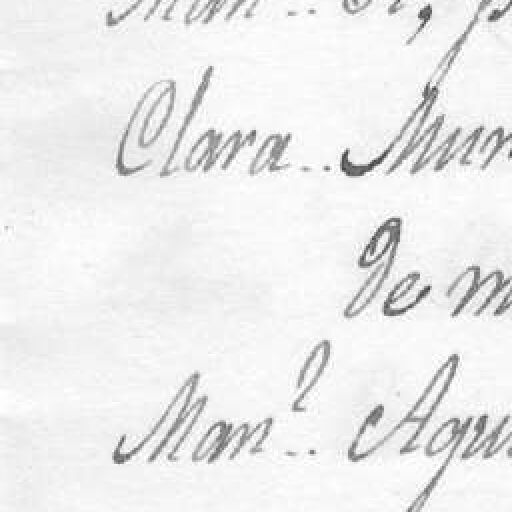 Clara.. Mun
De m
Man.l.. Agu